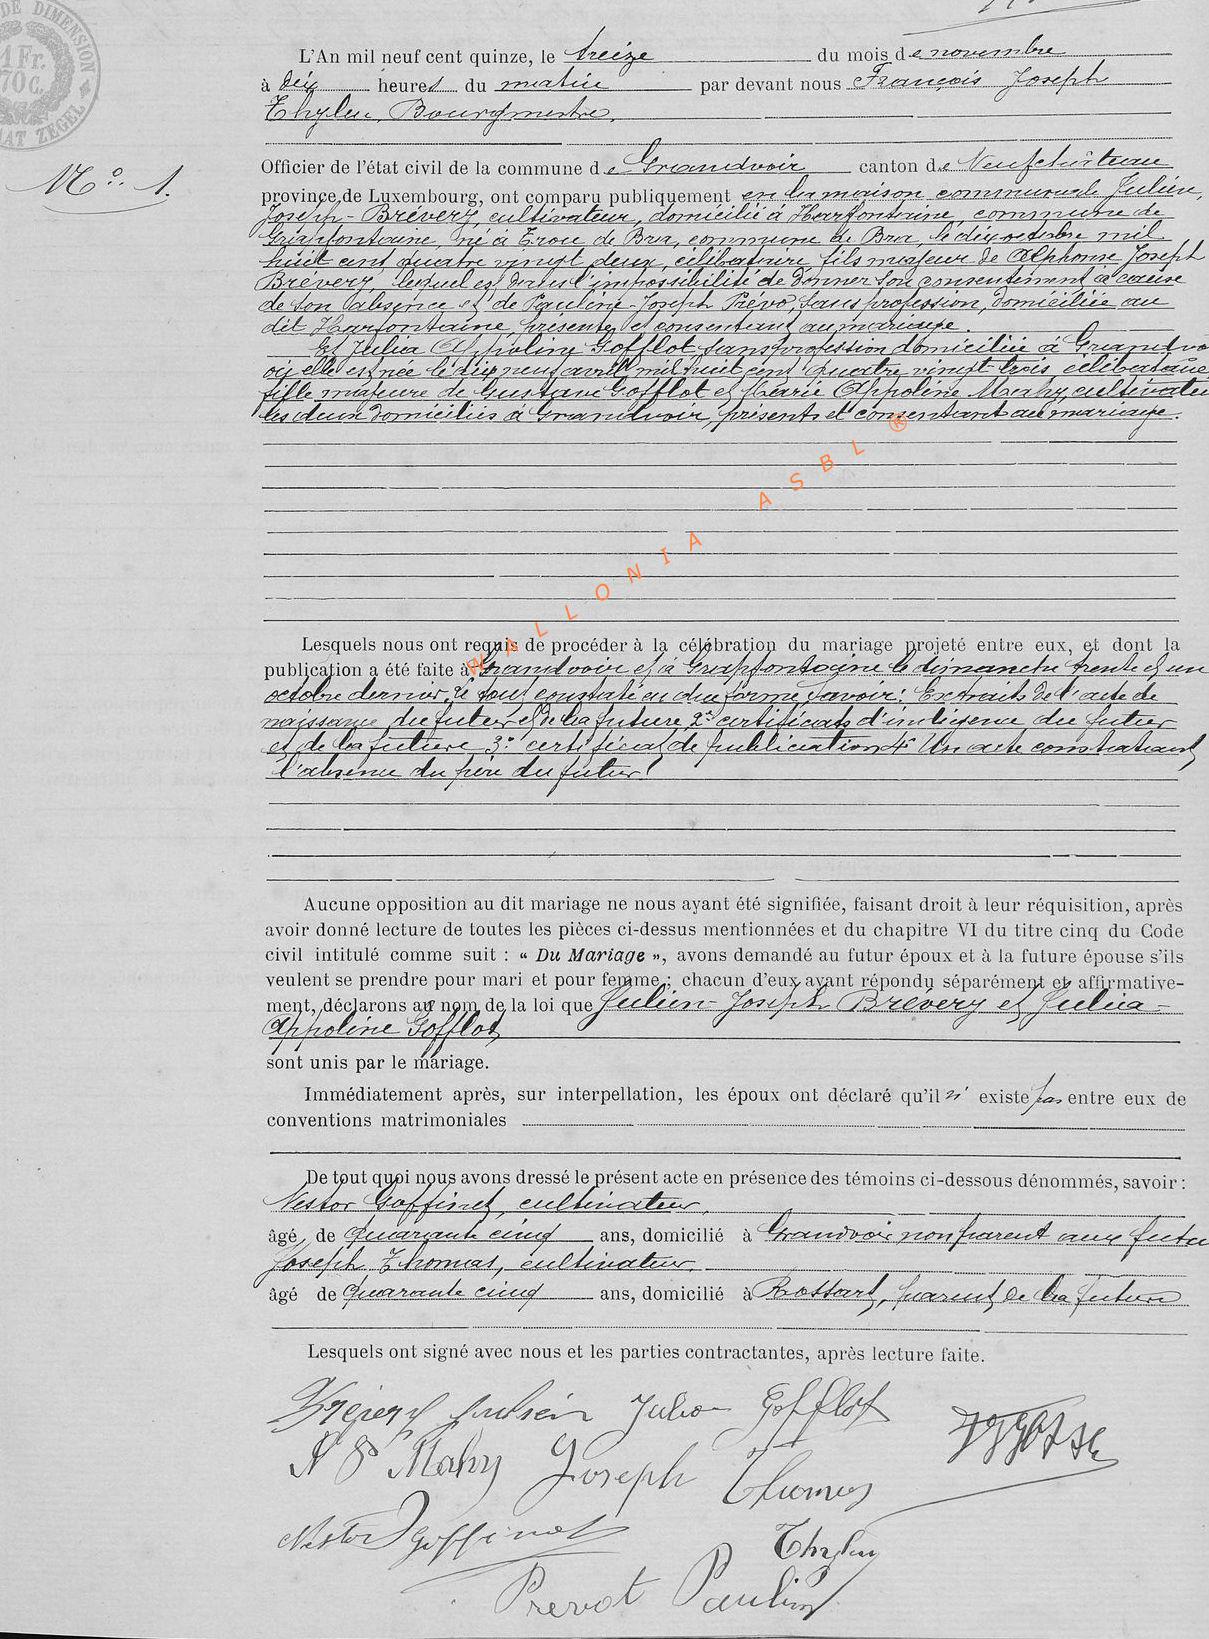 DE DIMENSION
1 Fr.
70c.
ZEGEL
L'An mil neuf cent quinze, le treize du mois de novembre
à dix heures du matin par devant nous François Joseph
Thylen, Bourgmestre,
N° 1.
Officier de l'état civil de la commune de Grandvoir canton de Neufchâteau
province de Luxembourg, ont comparu publiquement en la maison communale Julien,
Joseph - Brévery, cultivateur, domicilié à Harfontaine, commune de
Grapfontaine, né à Trou de Bra, commune de Bra, le dix octobre mil
huit cent quatre vingt deux, célibataire fils majeur de Alphonse Joseph
Brévery, lequel est dans l'impossibilité de donner son consentement à cause
de son absence et de Pauline-Joseph Prévo, sans profession, domiciliée au
dit Harfontaine, présente et consentant au mariage.
Et Julia Appoline Gofflot sans profession domiciliée à Grandvo
où elle est née le dix neuf avril mil huit cent quatre vingt trois, célibataire
fille majeure de Gustave Gofflot et Marie Appoline Mahy, cultivate
les deux domiciliés à Grandvoir, présents et consentant au mariage.
WALLONIA ASBL ®
Lesquels nous ont requis de procéder à la célébration du mariage projeté entre eux, et dont la
publication a été faite à Grandvoir et à Grapfontaine le dimanche trente et un
octobre dernier. Le tout constaté en due forme, savoir: Extraits de l'acte de
naissance du futur et de la future, 2° certificats d'indigence du futur
et de la future 3° certificat de publication 4° Un acte constatant
l'absence du père du futur!
Aucune opposition au dit mariage ne nous ayant été signifiée, faisant droit à leur réquisition, après
avoir donné lecture de toutes les pièces ci-dessus mentionnées et du chapitre VI du titre cinq du Code
civil intitulé comme suit : « Du Mariage », avons demandé au futur époux et à la future épouse s'ils
veulent se prendre pour mari et pour femme ; chacun d'eux ayant répondu séparément et affirmative-
ment, déclarons au nom de la loi que Julien-Joseph Brévery et Julia-
Appoline Gofflot,
sont unis par le mariage.
Immédiatement après, sur interpellation, les époux ont déclaré qu'il n' existe pas entre eux de
conventions matrimoniales
De tout quoi nous avons dressé le présent acte en présence des témoins ci-dessous dénommés, savoir :
Nestor Goffinet, cultivateur,
âgé de quarante cinq ans, domicilié à Grandvoir non parent aux futu
Joseph Thomas, cultivateur,
âgé de quarante cinq ans, domicilié à Rossart, parent de la future
Lesquels ont signé avec nous et les parties contractantes, après lecture faite.
Brévery Julien Julia Gofflot
Mahy Joseph Thomas
Nestor Goffinet Thylen
Prevot Pauline